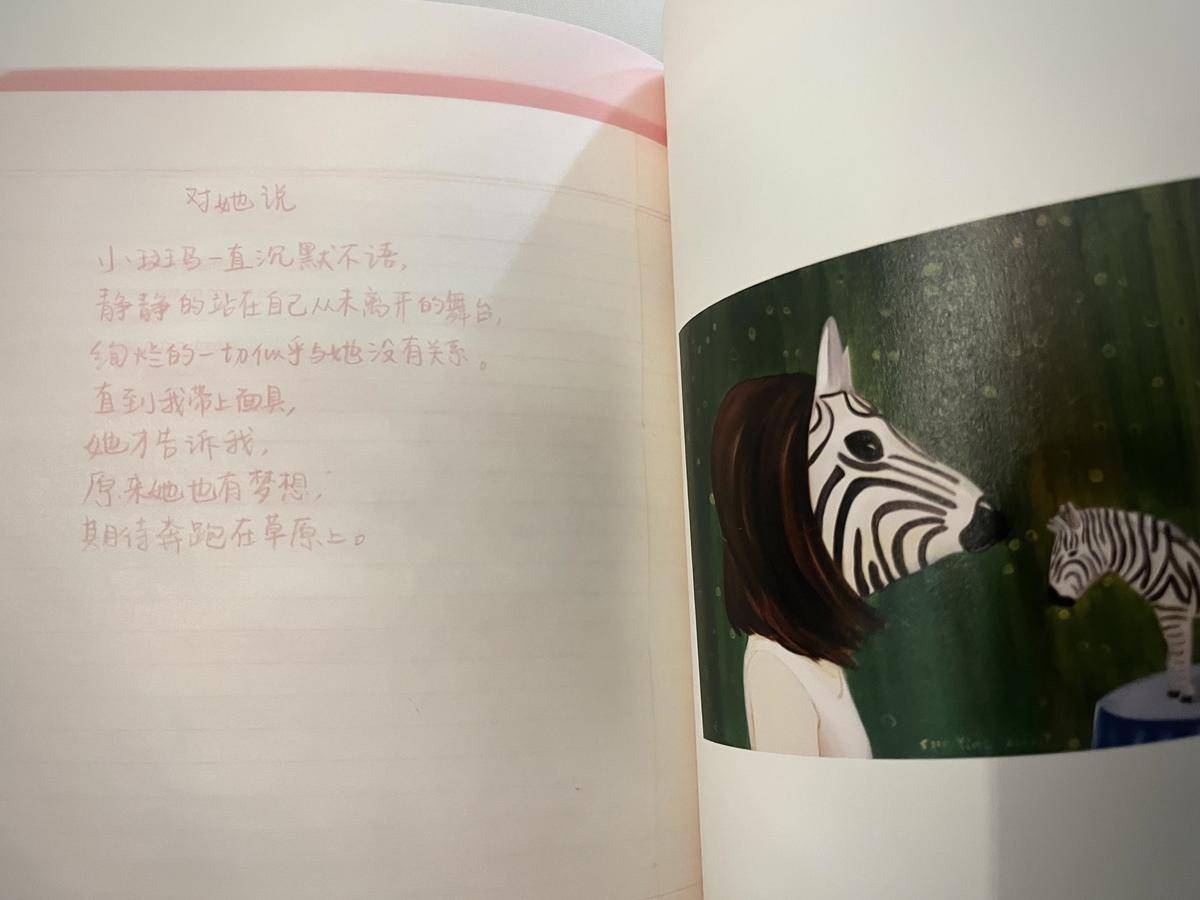 对她说
小斑马一直沉默不语,
静静的站在自己从未离开的舞台,
绚烂的一切似乎与她没有关系。
直到我带上面具,
她才告诉我,
原来她也有梦想,
期待奔跑在草原上。